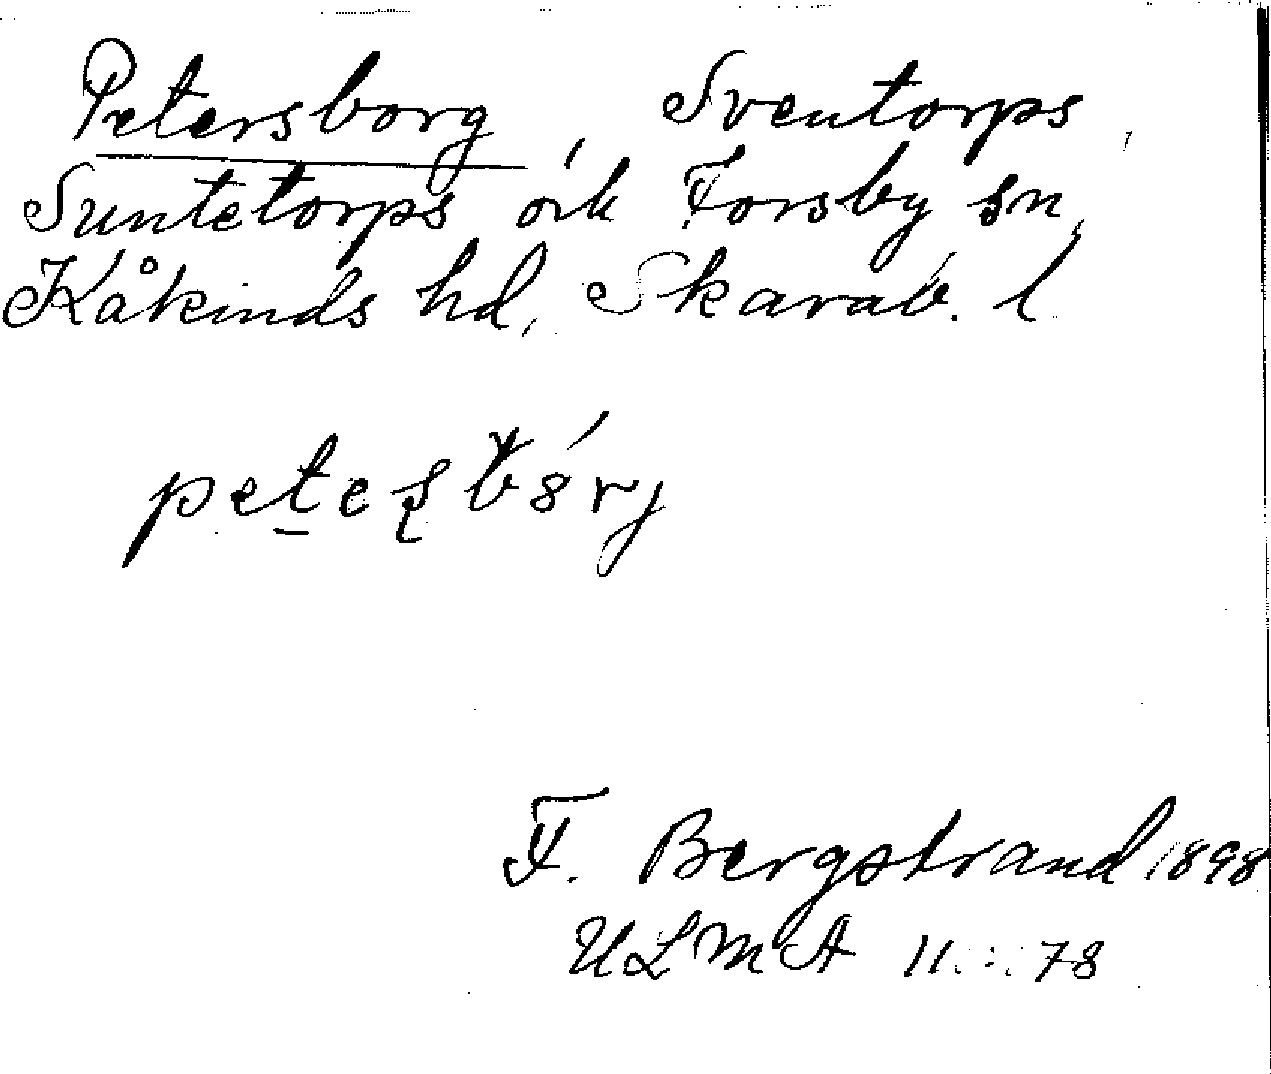 Petersborg, Sventorps,
Suntetorps o. k Forsby sn,
Kåkinds hd, Skarab. l
F. Bergstrand 1898
ULMA 11:78